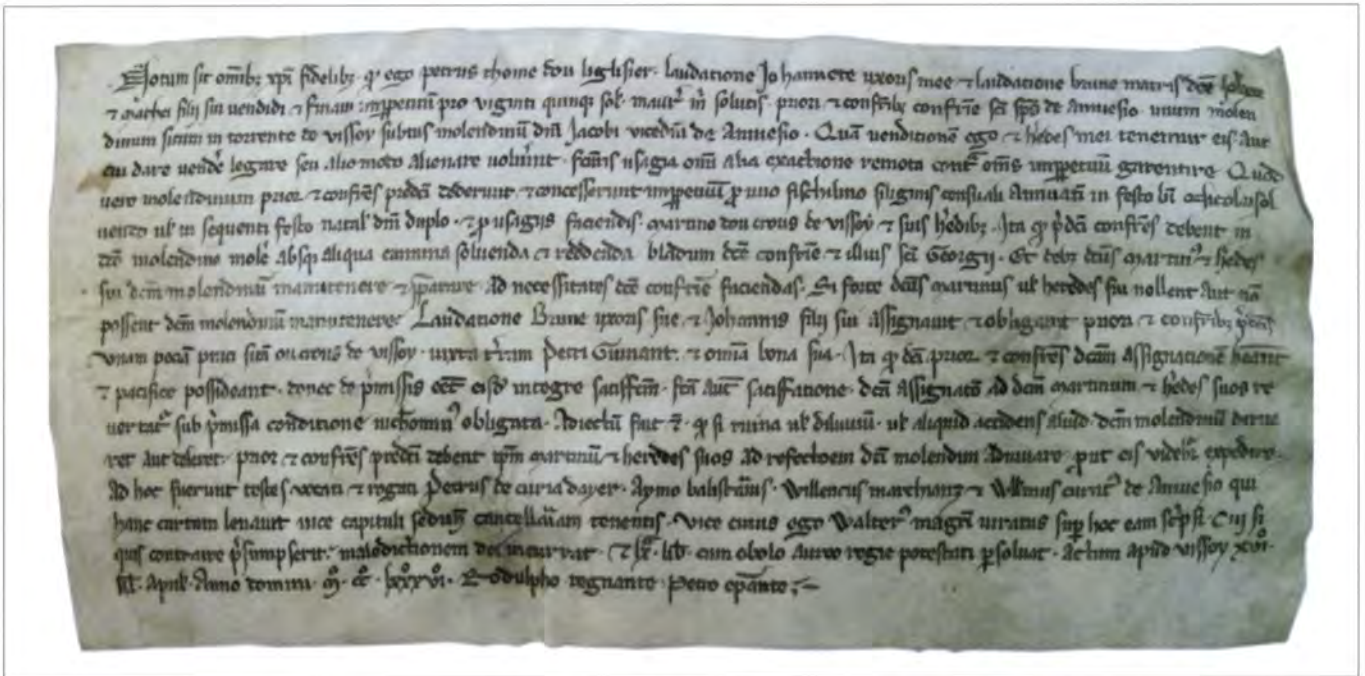 Notum sit omnib; xpi fidelib; q' ego petrus thome dou liglisier. laudatione Johannete uxoris mee & laudatione brune matris dce
& mathei filij sui vendidi & finavi imppetuum pro viginti quinq; sol. maur' m solutis. priori & confrib; confrie sci sps de Anniesio. unum molen
dinum situm in torrente de vissoy subtus molendinu dni Jacobi vicedni de Anniesio. Qua venditione ego & hedes mei tenemur eis. aut
cui dare vende legare seu alio modo alienare voluint. fcuris usagia omi alia exactione remota cont' oms imppetuu garentire. Quod
vero molendinum prior & confres predci dederunt. & concesserunt imppetuu p uno fischilino siliginis censuali annuati in festo bi
vendo ul' in sequenti festo natal' dni duplo. & p usagiis faciendis. martino dou crous de vissoy & suis hedib;. Ita q' pdci confres debent in
dco molendino mole absq; aliqua emina solvenda & reddenda bladum dce confrie & illius sci Georgij. Et deb; dcus martin' & hedes
sui dcm molendinu manutenere & ad necessitates dce confrie faciendas. Si forte dcus martinus ul' heredes sui nollent aut no
possent dcm molendinu manutenere. Laudatione Brune uxoris sue, & Johannis filij sui assignavit & obligavit priori & confrib; pdcis
unam peciam prati sitam ou crous de vissoy. iuxta tram petri & omia bona sua. Ita q' dci prior & confres dcam assignatione heant
& pacifice possideant. donec de pmissis eisd' integre satisfcm. fca aut satisfatione. dca assignato ad dcm martinum & hedes suos re
vertat' sub pmissa conditione nichomin' obligata. Adiectu fuit &. q' si ruina ul' diluvium. ul' aliquid accidens aliud. dcm molendinu derue
ret aut deleret. prior & confres predci debent ipm martinu & heredes suos ad refectioem dci molendini adiuvare. put eis videbit expedire.
Ad hoc fuerunt testes vocati & rogati Petrus de curia dayer. Aymo balistarius. Willencus marchianz & Willmus curat' de Anniesio qui
hanc cartam levavit vice capituli sedun cancellariam tenentis. Vice cuius ego Walter' magri sup hoc eam scpsi. Cui si
quis contraire psumpserit. maledictionem dei incurrat. & lx. lib. cum obolo aureo regie potestati psolvat. Actum apud vissoy xvi.
kl. april. Anno domini. m. cc. lxxxvi. Rodulpho regnante. Petro epante.